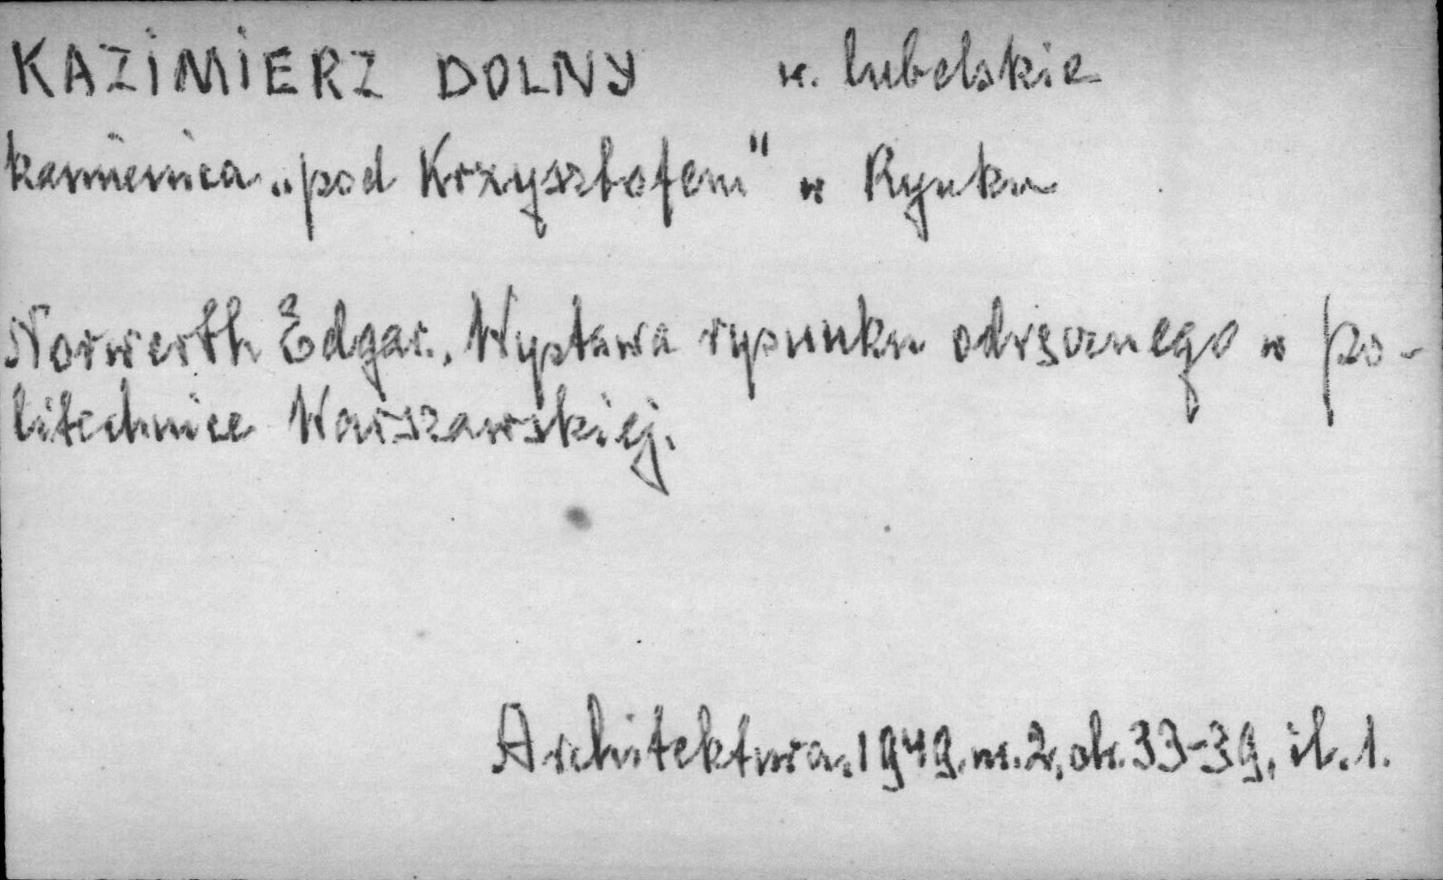 KAZIMIERZ DOLNY w. lubelskie
kamienica „pod Krzysztofem" w Rynku
Norwerth Edgar., Wystawa rysunku odręcznego w po-
litechnice Warszawskiej.
Architektura. 1949. nr. 2, str. 33-39, il. 1.